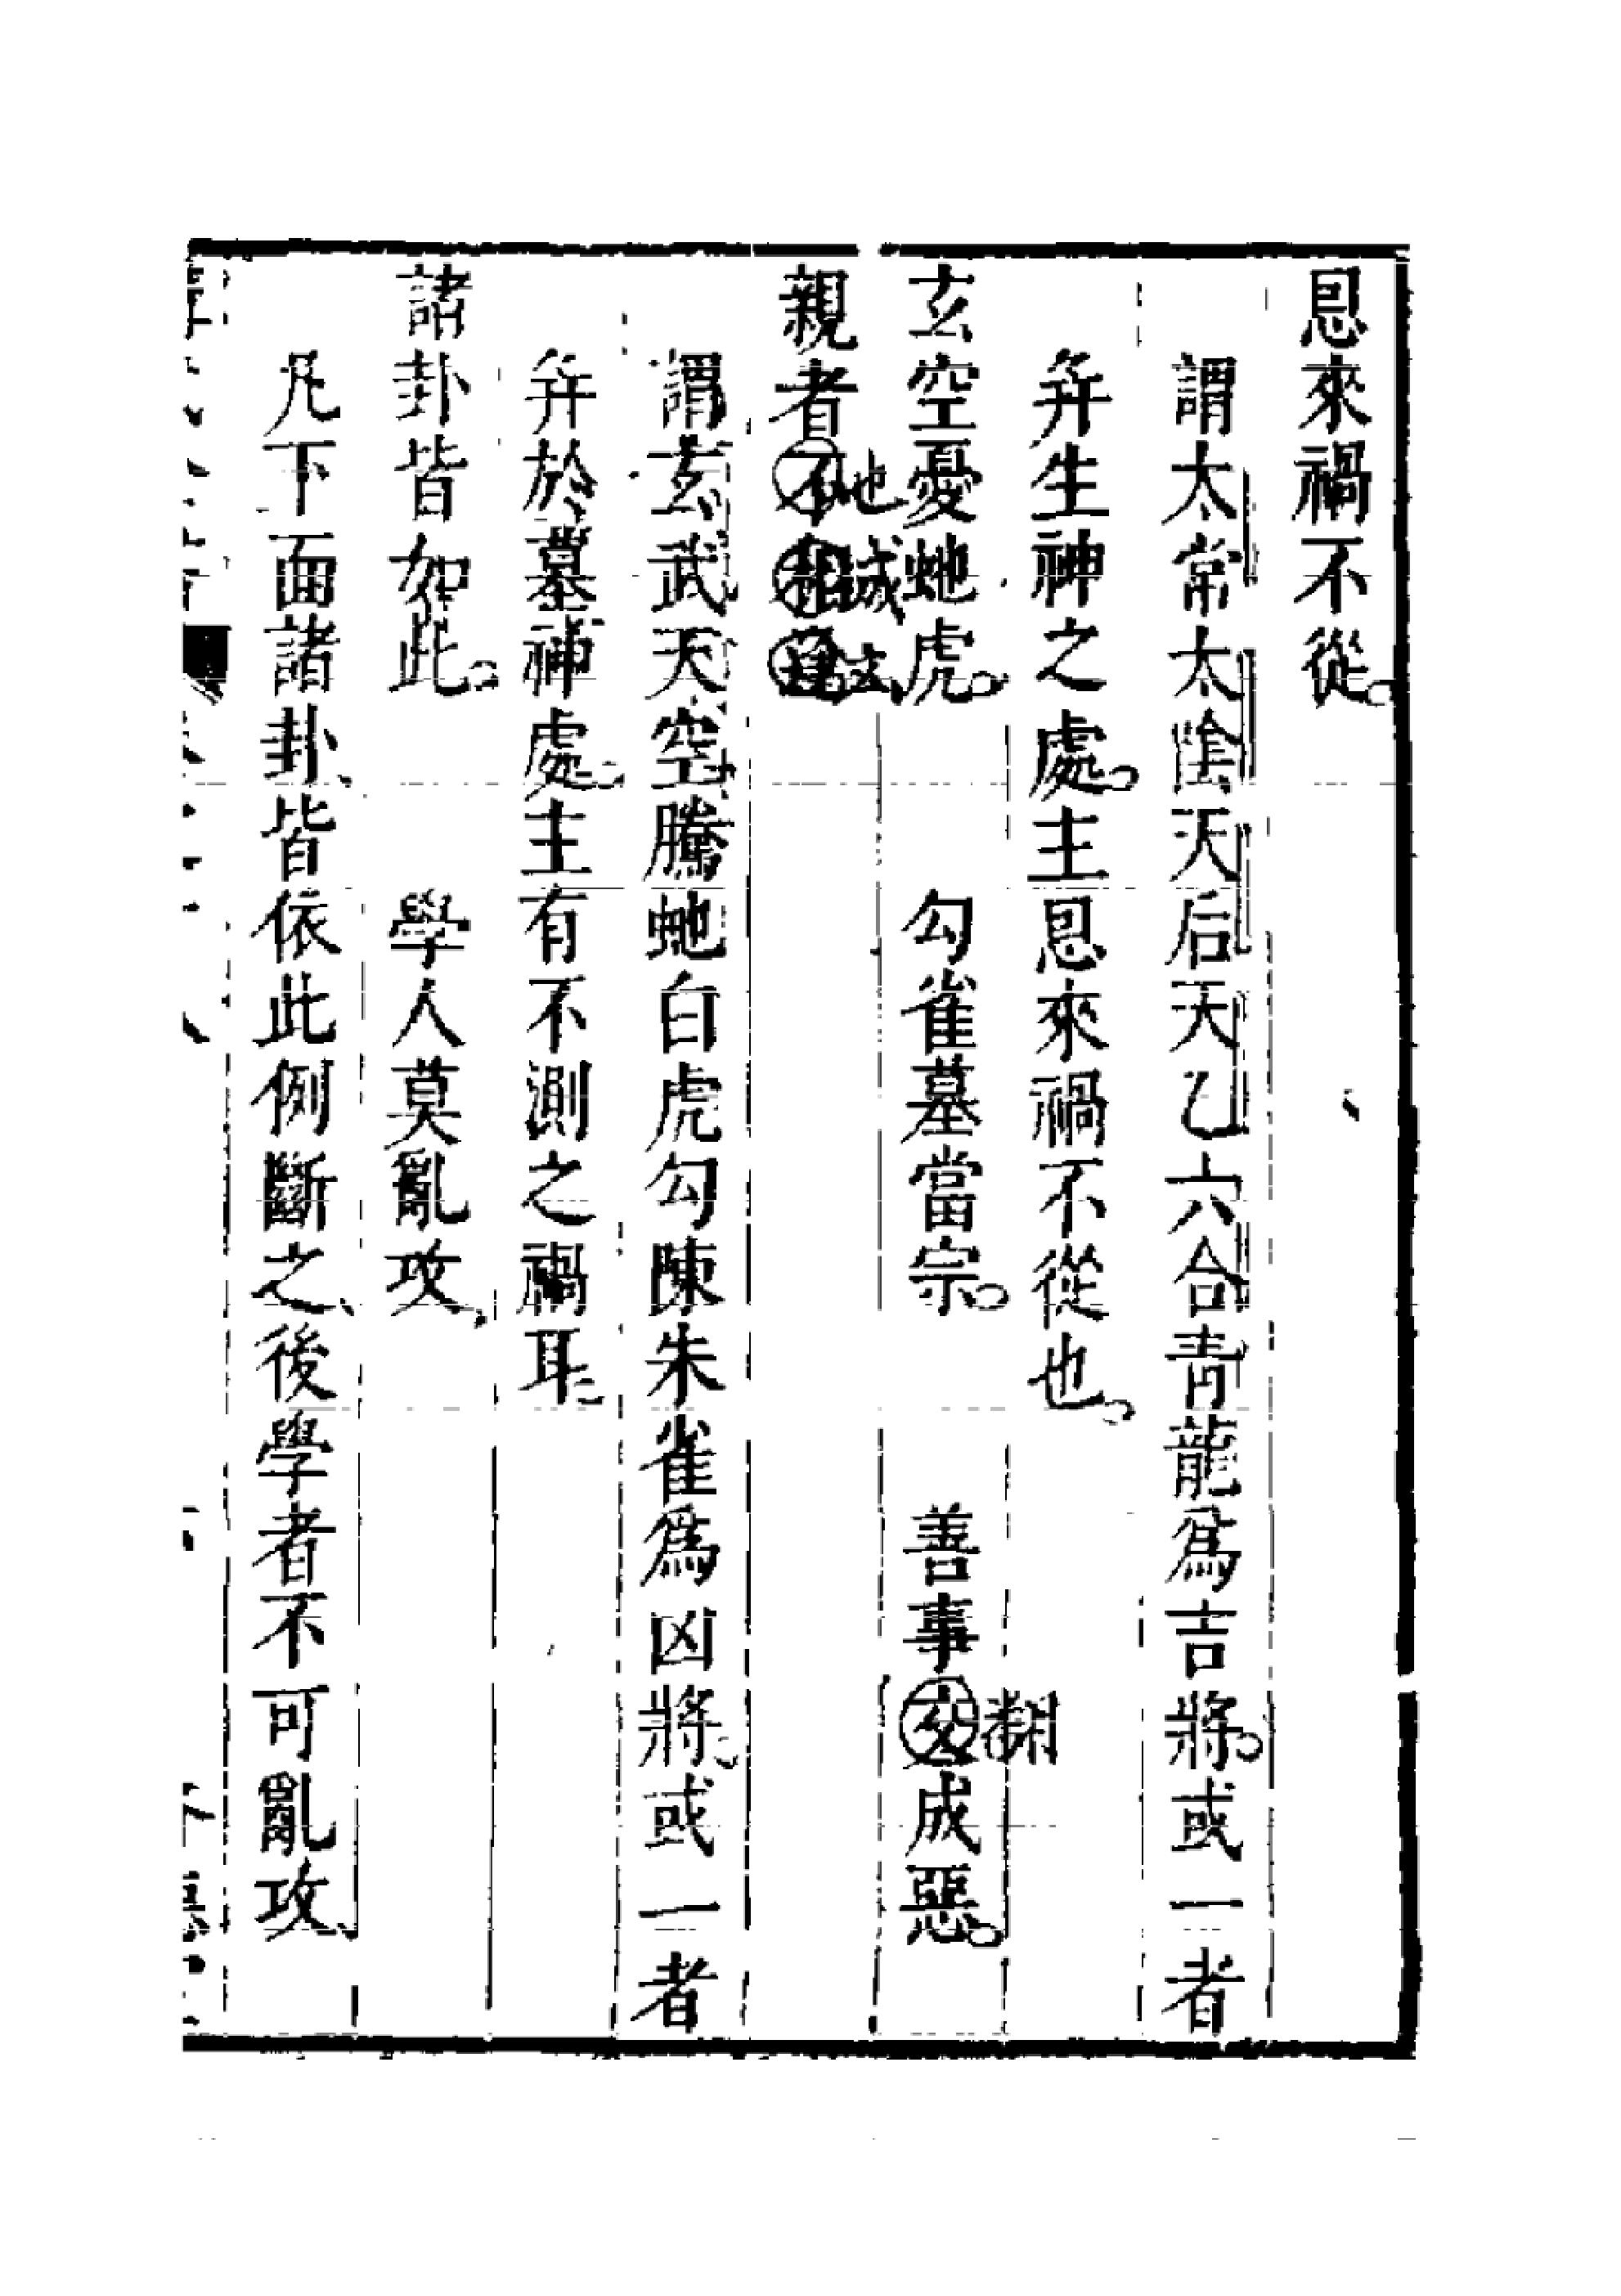 恩來禍不從。
謂太常太陰天后天乙六合青龍爲吉將。或一者
并生神之處。主恩來禍不從也。
玄空憂虵虎。 勾雀墓當宗。 善事交成惡。
翻
親者不相逢
他誠
謂玄武天空騰虵白虎勾陳朱雀爲凶將、或一者
并於墓神處。主有不測之禍耳
諸卦皆如此。 學人莫亂攻、
凡下面諸卦、皆依此例斷之、後學者不可亂攻、